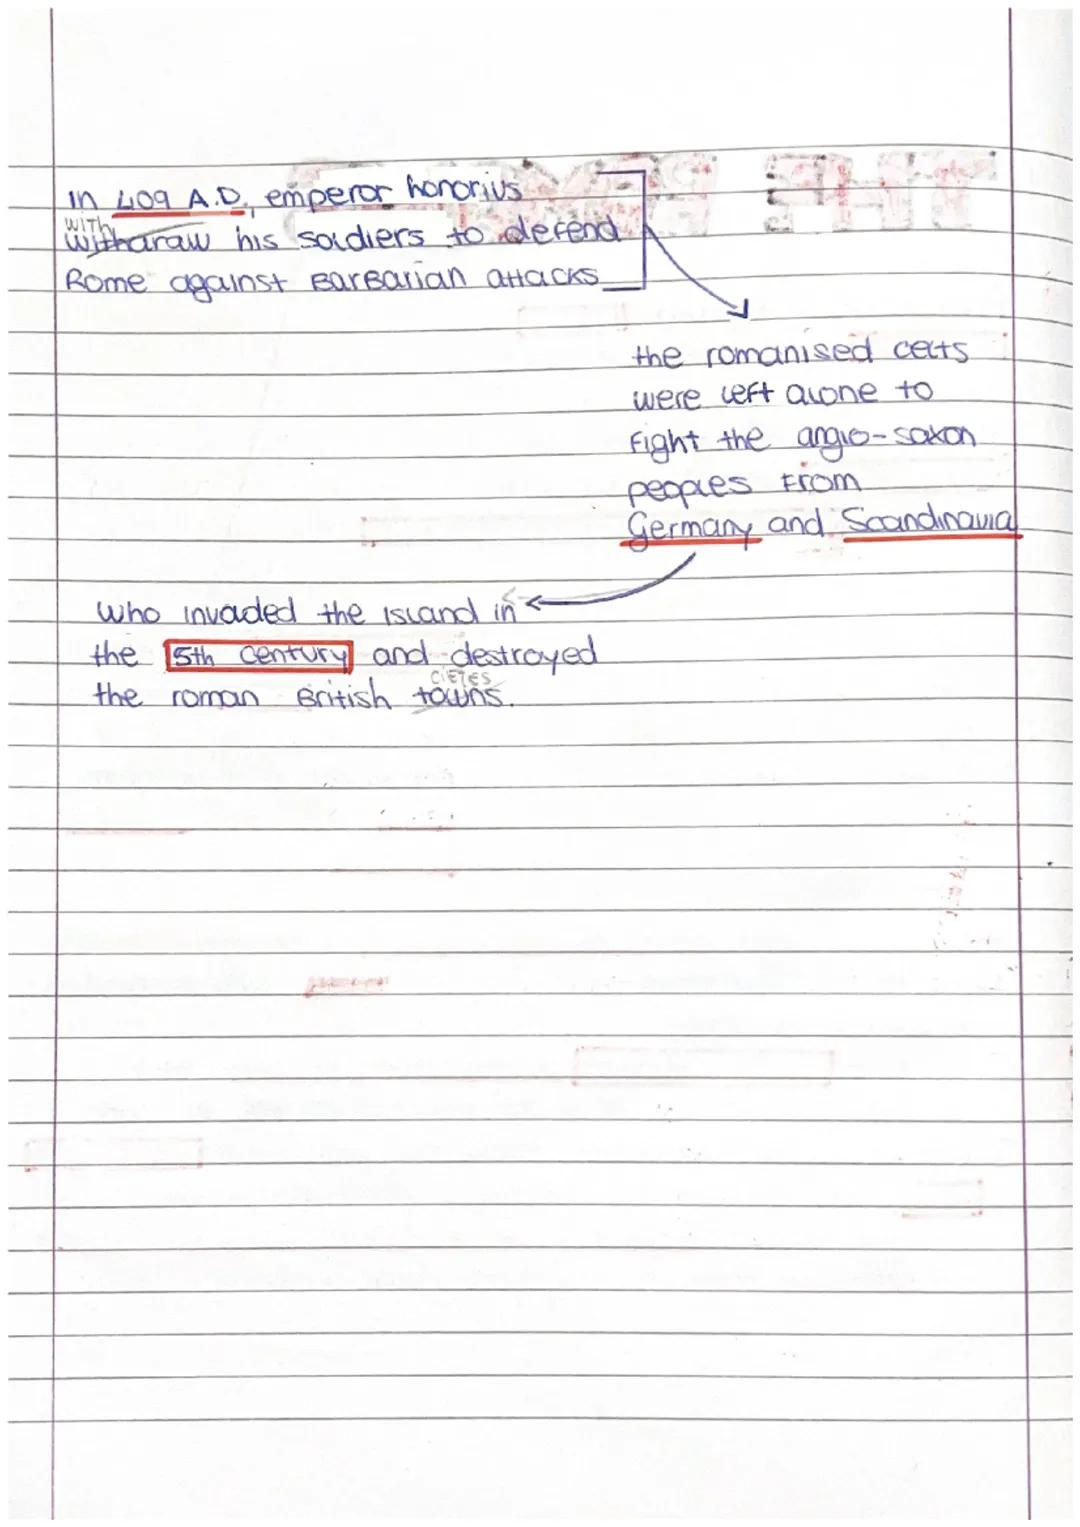 In 409 A.D. emperor honorius
WITH
Withdraw his soldiers to defend
Rome against Barbarian attacks
the romanised celts
were left alone to
fight the anglo-saxon
peoples from
Germany and Scandinavia
who invaded the island in
the 5th century and destroyed
CIETES
the roman British towns.